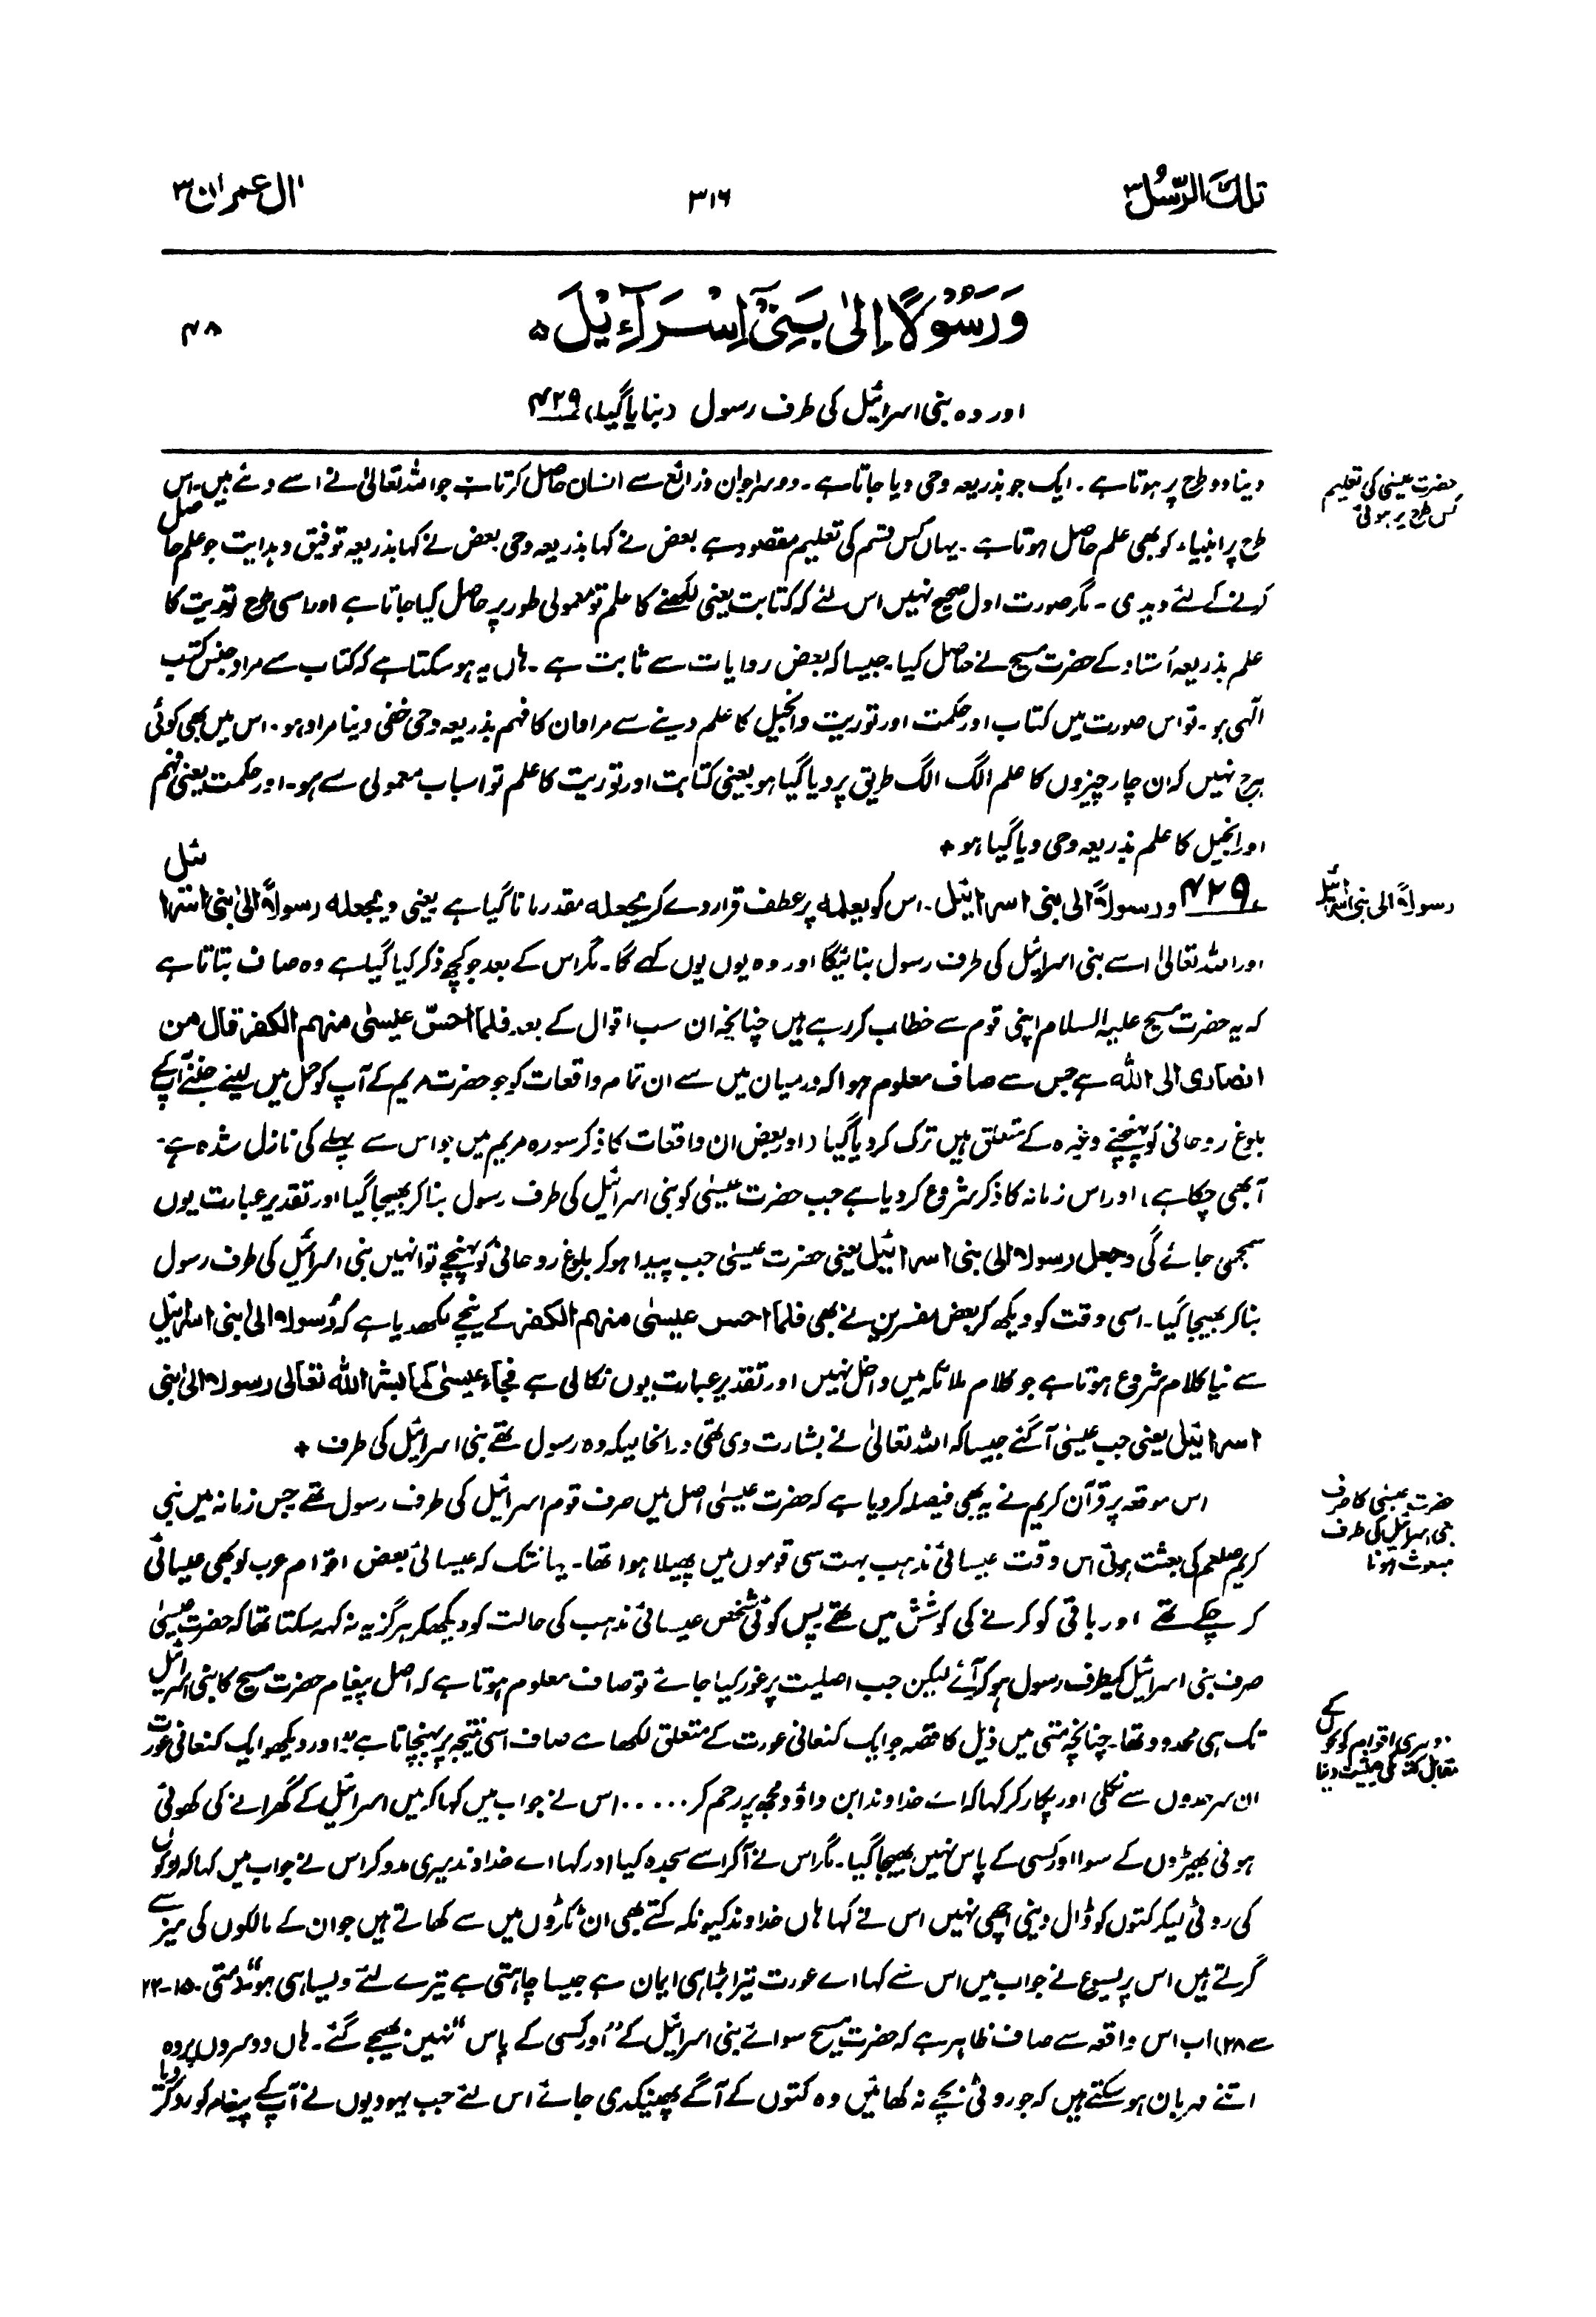 تلك الرّسل ۳
۳۱۶
اٰل عمران ۳
وَرَسُوْلًا اِلٰى بَنِیْٓ اِسْرَآءِیْلَ ۵
۴۸
اور وہ بنی اسرائیل کی طرف رسول (بنایا گیا) ۴۲۹
حضرت عیسیٰ کی تعلیم
کس طرح پر ہوئی
دینا دو طرح پر ہوتا ہے ۔ ایک جو بذریعہ وحی دیا جاتا ہے ۔ دوسرا جو ان ذرائع سے انسان حاصل کرتا ہے جو اللہ تعالیٰ نے اسے دئے ہیں۔ اس
طرح پر انبیاء کو بھی علم حاصل ہوتا ہے ۔ یہاں کس قسم کی تعلیم مقصود ہے بعض نے کہا بذریعہ وحی بعض نے کہا بذریعہ توفیق و ہدایت جو علم حاصل
کرنے کے لئے دیدی ۔ مگر صورت اول صحیح نہیں اس لئے کہ کتابت یعنی لکھنے کا علم تو معمولی طور پر حاصل کیا جاتا ہے اور اسی طرح توریت کا
علم بذریعہ اُستاد کے حضرت مسیح نے حاصل کیا۔ جیسا کہ بعض روایات سے ثابت ہے ۔ ہاں یہ ہو سکتا ہے کہ کتاب سے مراد جنس کتب
الٰہی ہو ۔ تو اس صورت میں کتاب اور حکمت اور توریت و انجیل کا علم دینے سے مراد ان کا فہم بذریعہ وحی خفی دینا مراد ہو ۔ اس میں بھی کوئی
ہرج نہیں کہ ان چار چیزوں کا علم الگ الگ طریق پر دیا گیا ہو یعنی کتابت اور توریت کا علم تو اسباب معمولی سے ہو۔ اور حکمت یعنی فہم
اور انجیل کا علم بذریعہ وحی دیا گیا ہو +
رسولاً الی بنی اسرائیل
۴۲۹ ورسولاً الی بنی اسرائیل ۔ اس کو یعلمه پر عطف قرار دے کر یجعله مقدر مانا گیا ہے یعنی ویجعله رسولاً الیٰ بنی اسرائیل
اور اللہ تعالیٰ اسے بنی اسرائیل کی طرف رسول بنائیگا اور وہ یوں یوں کہے گا۔ مگر اس کے بعد جو کچھ ذکر کیا گیا ہے وہ صاف بتاتا ہے
کہ یہ حضرت مسیح علیہ السلام اپنی قوم سے خطاب کر رہے ہیں چنانچہ ان سب اقوال کے بعد فلمّا احسّ عیسیٰ منہم الکفر قال من
انصاری الی اللہ ہے جس سے صاف معلوم ہوا کہ درمیان میں سے ان تمام واقعات کو جو حضرت مریم کے آپ کو حمل میں لینے جننے آپکے
بلوغ روحانی کو پہنچنے وغیرہ کے متعلق ہیں ترک کر دیا گیا (اور بعض ان واقعات کا ذکر سورہ مریم میں جو اس سے پہلے کی نازل شدہ ہے۔
آبھی چکا ہے) اور اس زمانہ کا ذکر شروع کر دیا ہے جب حضرت عیسیٰ کو بنی اسرائیل کی طرف رسول بنا کر بھیجا گیا اور تقدیر عبارت یوں
سمجھی جائے گی وجعل رسولا الی بنی اسرائیل یعنی حضرت عیسیٰ جب پیدا ہو کر بلوغ روحانی کو پہنچے تو انہیں بنی اسرائیل کی طرف رسول
بنا کر بھیجا گیا ۔ اسی وقت کو دیکھ کر بعض مفسرین نے بھی فلمّا احس عیسیٰ منہم الکفر کے نیچے لکھدیا ہے کہ رسولا الیٰ بنی اسرائیل
سے نیا کلام شروع ہوتا ہے جو کلام ملائکہ میں داخل نہیں اور تقدیر عبارت یوں نکالی ہے فجاء عیسیٰ کما بشر اللہ تعالی رسولا الیٰ بنی
اسرائیل یعنی جب عیسیٰ آ گئے جیسا کہ اللہ تعالیٰ نے بشارت دی تھی درانحالیکہ وہ رسول تھے بنی اسرائیل کی طرف +
حضرت عیسیٰ کا صرف
بنی اسرائیل کی طرف
مبعوث ہونا
اس موقعہ پر قرآن کریم نے یہ بھی فیصلہ کر دیا ہے کہ حضرت عیسیٰ اصل میں صرف قوم اسرائیل کی طرف رسول تھے جس زمانہ میں نبی
کریم صلعم کی بعثت ہوئی اس وقت عیسائی مذہب بہت سی قوموں میں پھیلا ہوا تھا ۔ یہانتک کہ عیسائی بعض اقوام عرب کو بھی عیسائی
کر چکے تھے اور باقی کو کرنے کی کوشش میں تھے پس کوئی شخص عیسائی مذہب کی حالت کو دیکھکر ہرگز یہ نہ کہہ سکتا تھا کہ حضرت عیسیٰ
صرف بنی اسرائیل کیطرف رسول ہو کر آئے لیکن جب اصلیت پر غور کیا جائے تو صاف معلوم ہوتا ہے کہ اصل پیغام حضرت مسیح کا بنی اسرائیل
دوسری اقوام کو بچوں کے
مقابل کتوں کی حیثیت دینا
تک ہی محدود تھا ۔ چنانچہ متی میں ذیل کا قصہ جو ایک کنعانی عورت کے متعلق لکھا ہے صاف اسی نتیجہ پر پہنچاتا ہے "اور دیکھو ایک کنعانی عورت
ان سرحدوں سے نکلی اور پکار کر کہا کہ اے خداوند ابن داؤد مجھ پر رحم کر ..... اس نے جواب میں کہا کہ میں اسرائیل کے گھرانے کی کھوئی
ہوئی بھیڑوں کے سوا اور کسی کے پاس نہیں بھیجا گیا ۔ مگر اس نے آ کر اسے سجدہ کیا اور کہا اے خداوند میری مدد کر اس نے جواب میں کہا کہ لڑکوں
کی روٹی لیکر کتوں کو ڈال دینی اچھی نہیں اس نے کہا ہاں خداوند کیونکہ کتے بھی ان ٹکڑوں میں سے کھاتے ہیں جو ان کے مالکوں کی میز سے
گرتے ہیں اس پر یسوع نے جواب میں اس سے کہا اے عورت تیرا بڑا ہی ایمان ہے جیسا چاہتی ہے تیرے لئے ویسا ہی ہو" (متی ۱۵-۲۲
سے ۲۸) اب اس واقعہ سے صاف ظاہر ہے کہ حضرت مسیح سوائے بنی اسرائیل کے "اور کسی کے پاس" نہیں بھیجے گئے ۔ ہاں دوسروں پر وہ
اتنے مہربان ہو سکتے ہیں کہ جو روٹی بچے نہ کھائیں وہ کتوں کے آگے پھینکدی جائے اس لئے جب یہودیوں نے آپ کے پیغام کو رد کر دیا